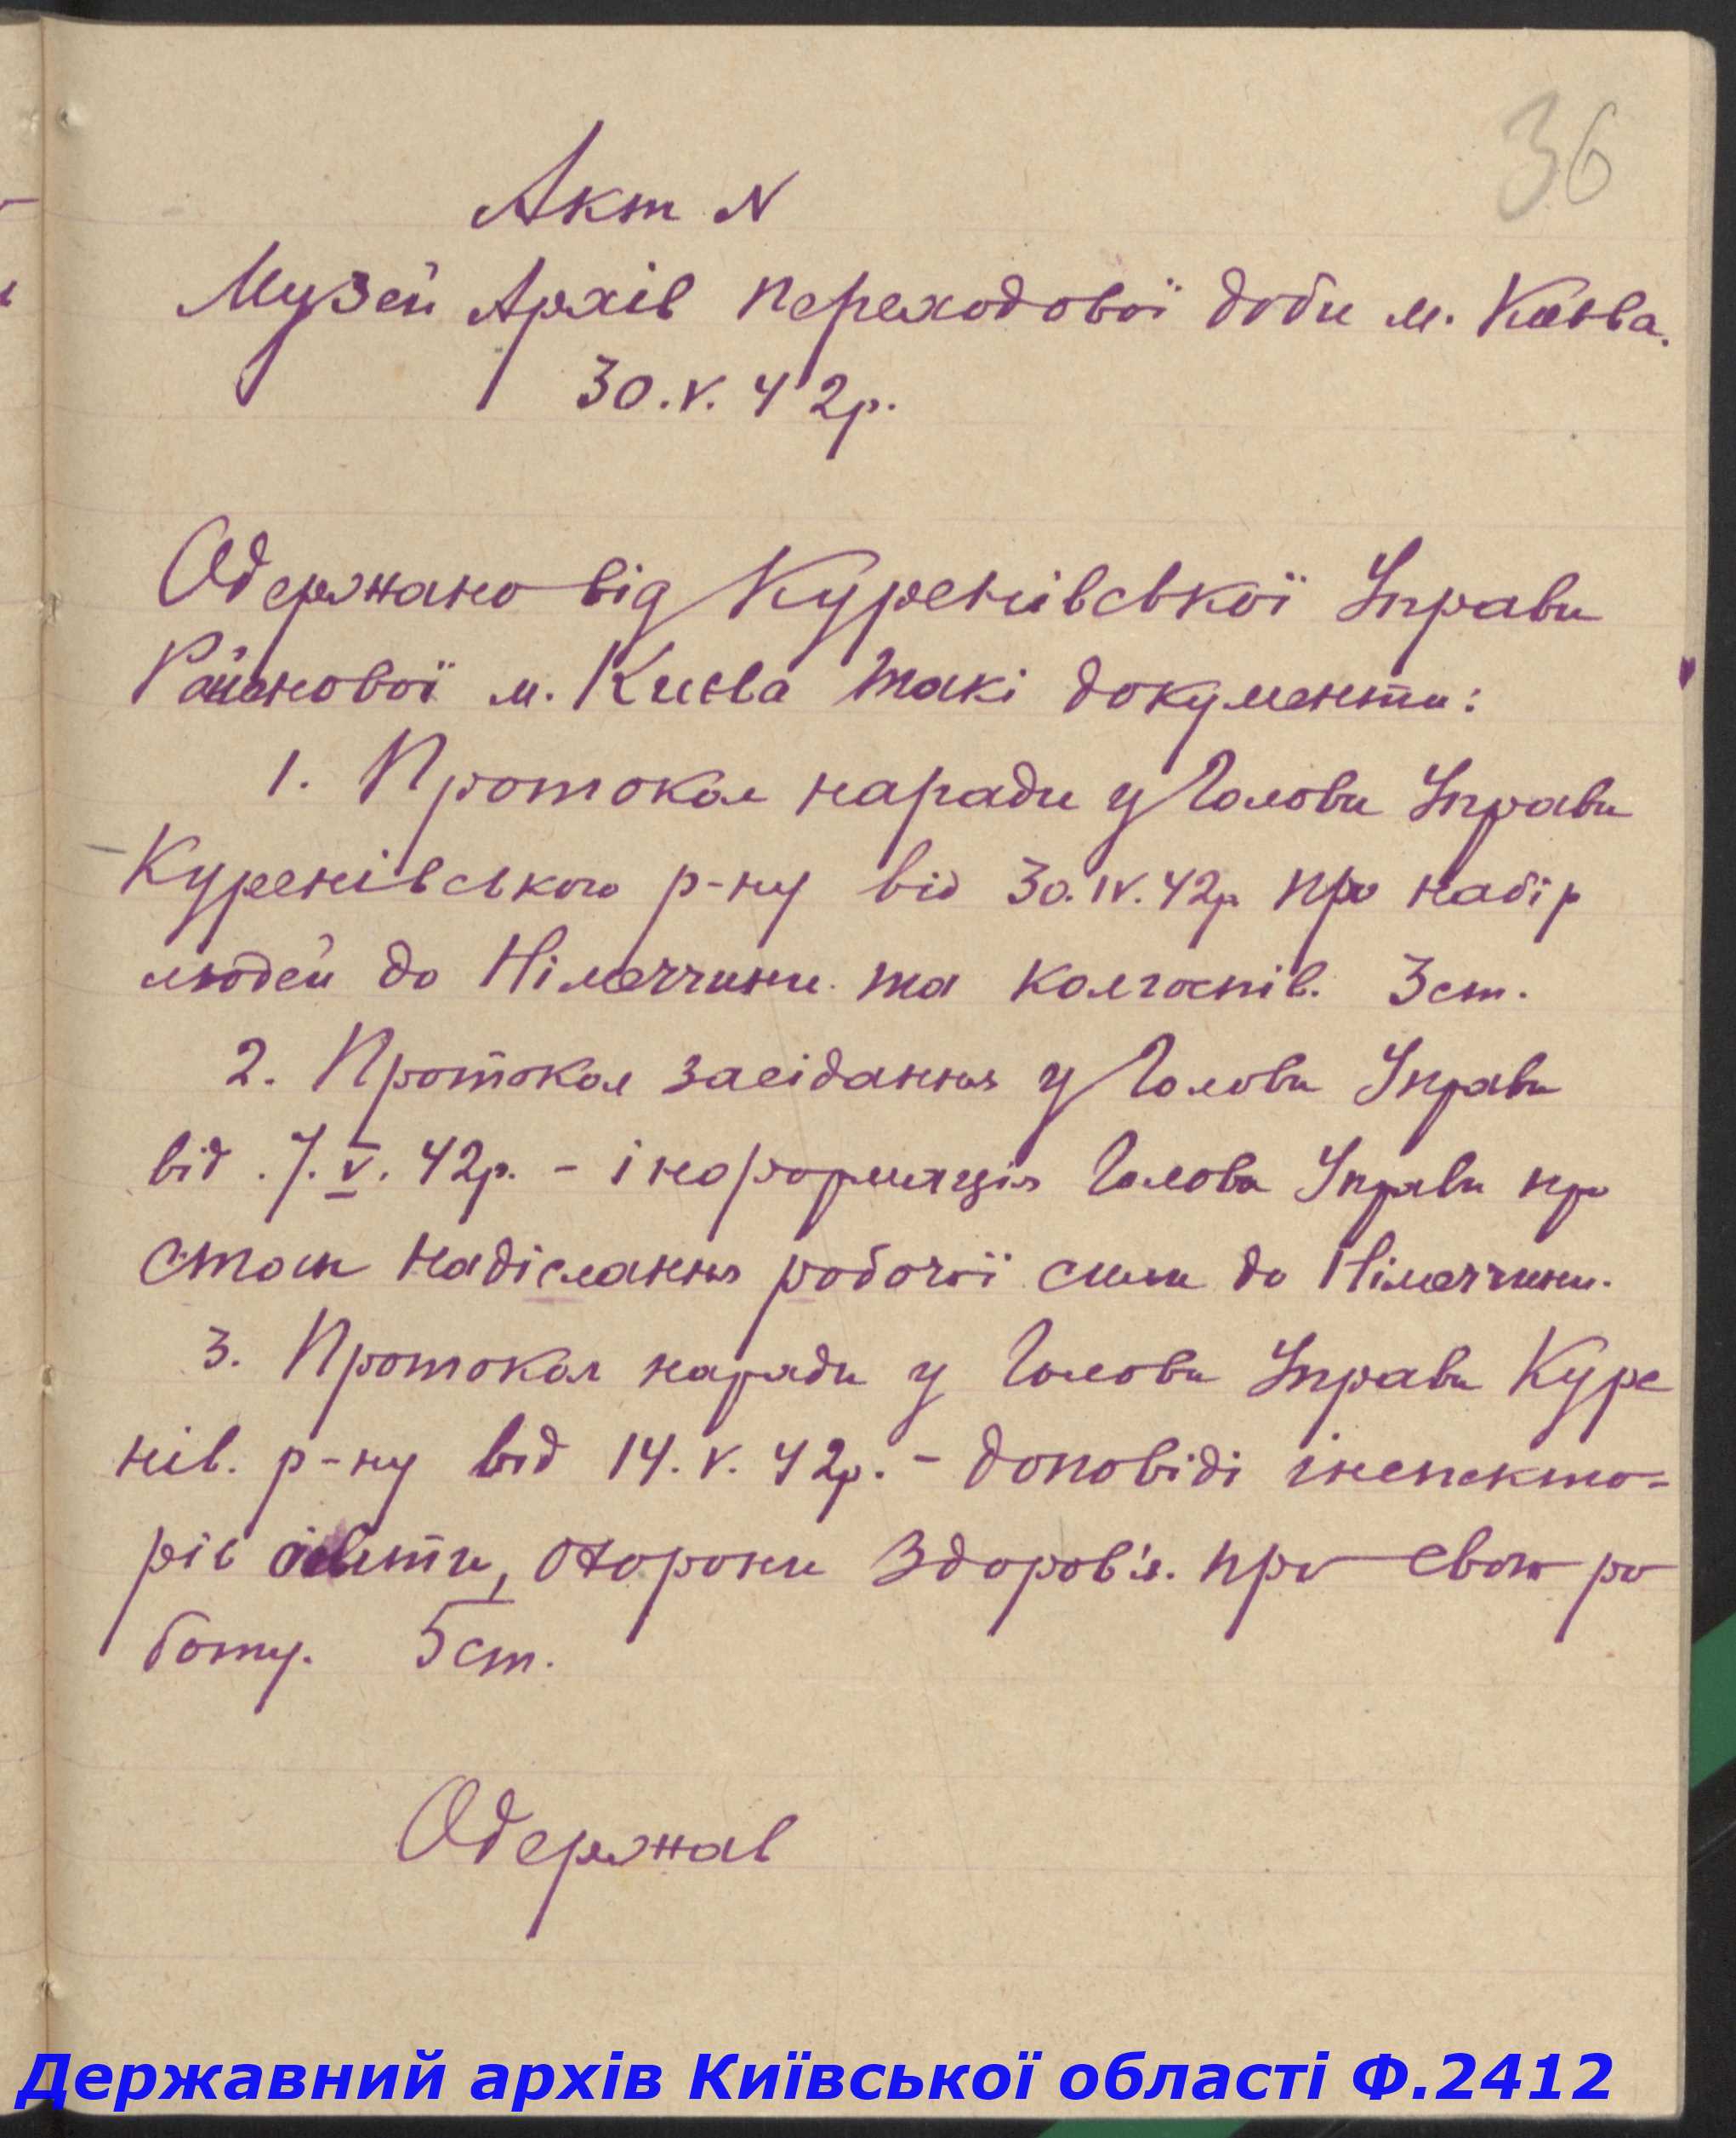 36
Акт N
Музей Архів переходової доби м. Києва.
30.V.42р.
Одержано від Куренівської Управи
Районової м. Києва такі документи:
1. Протокол наради у Голови Управи
Куренівського р-ну від 30.IV.42р. про набір
людей до Німеччини та колгоспів. 3 ст.
2. Протокол засідання у Голови Управи
від 7.V.42р. - інформація Голова Управи про
стан надіслання робочої сили до Німеччини.
3. Протокол наради у Голови Управи Куре
нів. р-ну від 14.V.42р. - доповіді інспекто-
рів освіти, охорони здоров'я про свою ро
боту. 5 ст.
Одержав
Державний архів Київської області Ф.2412